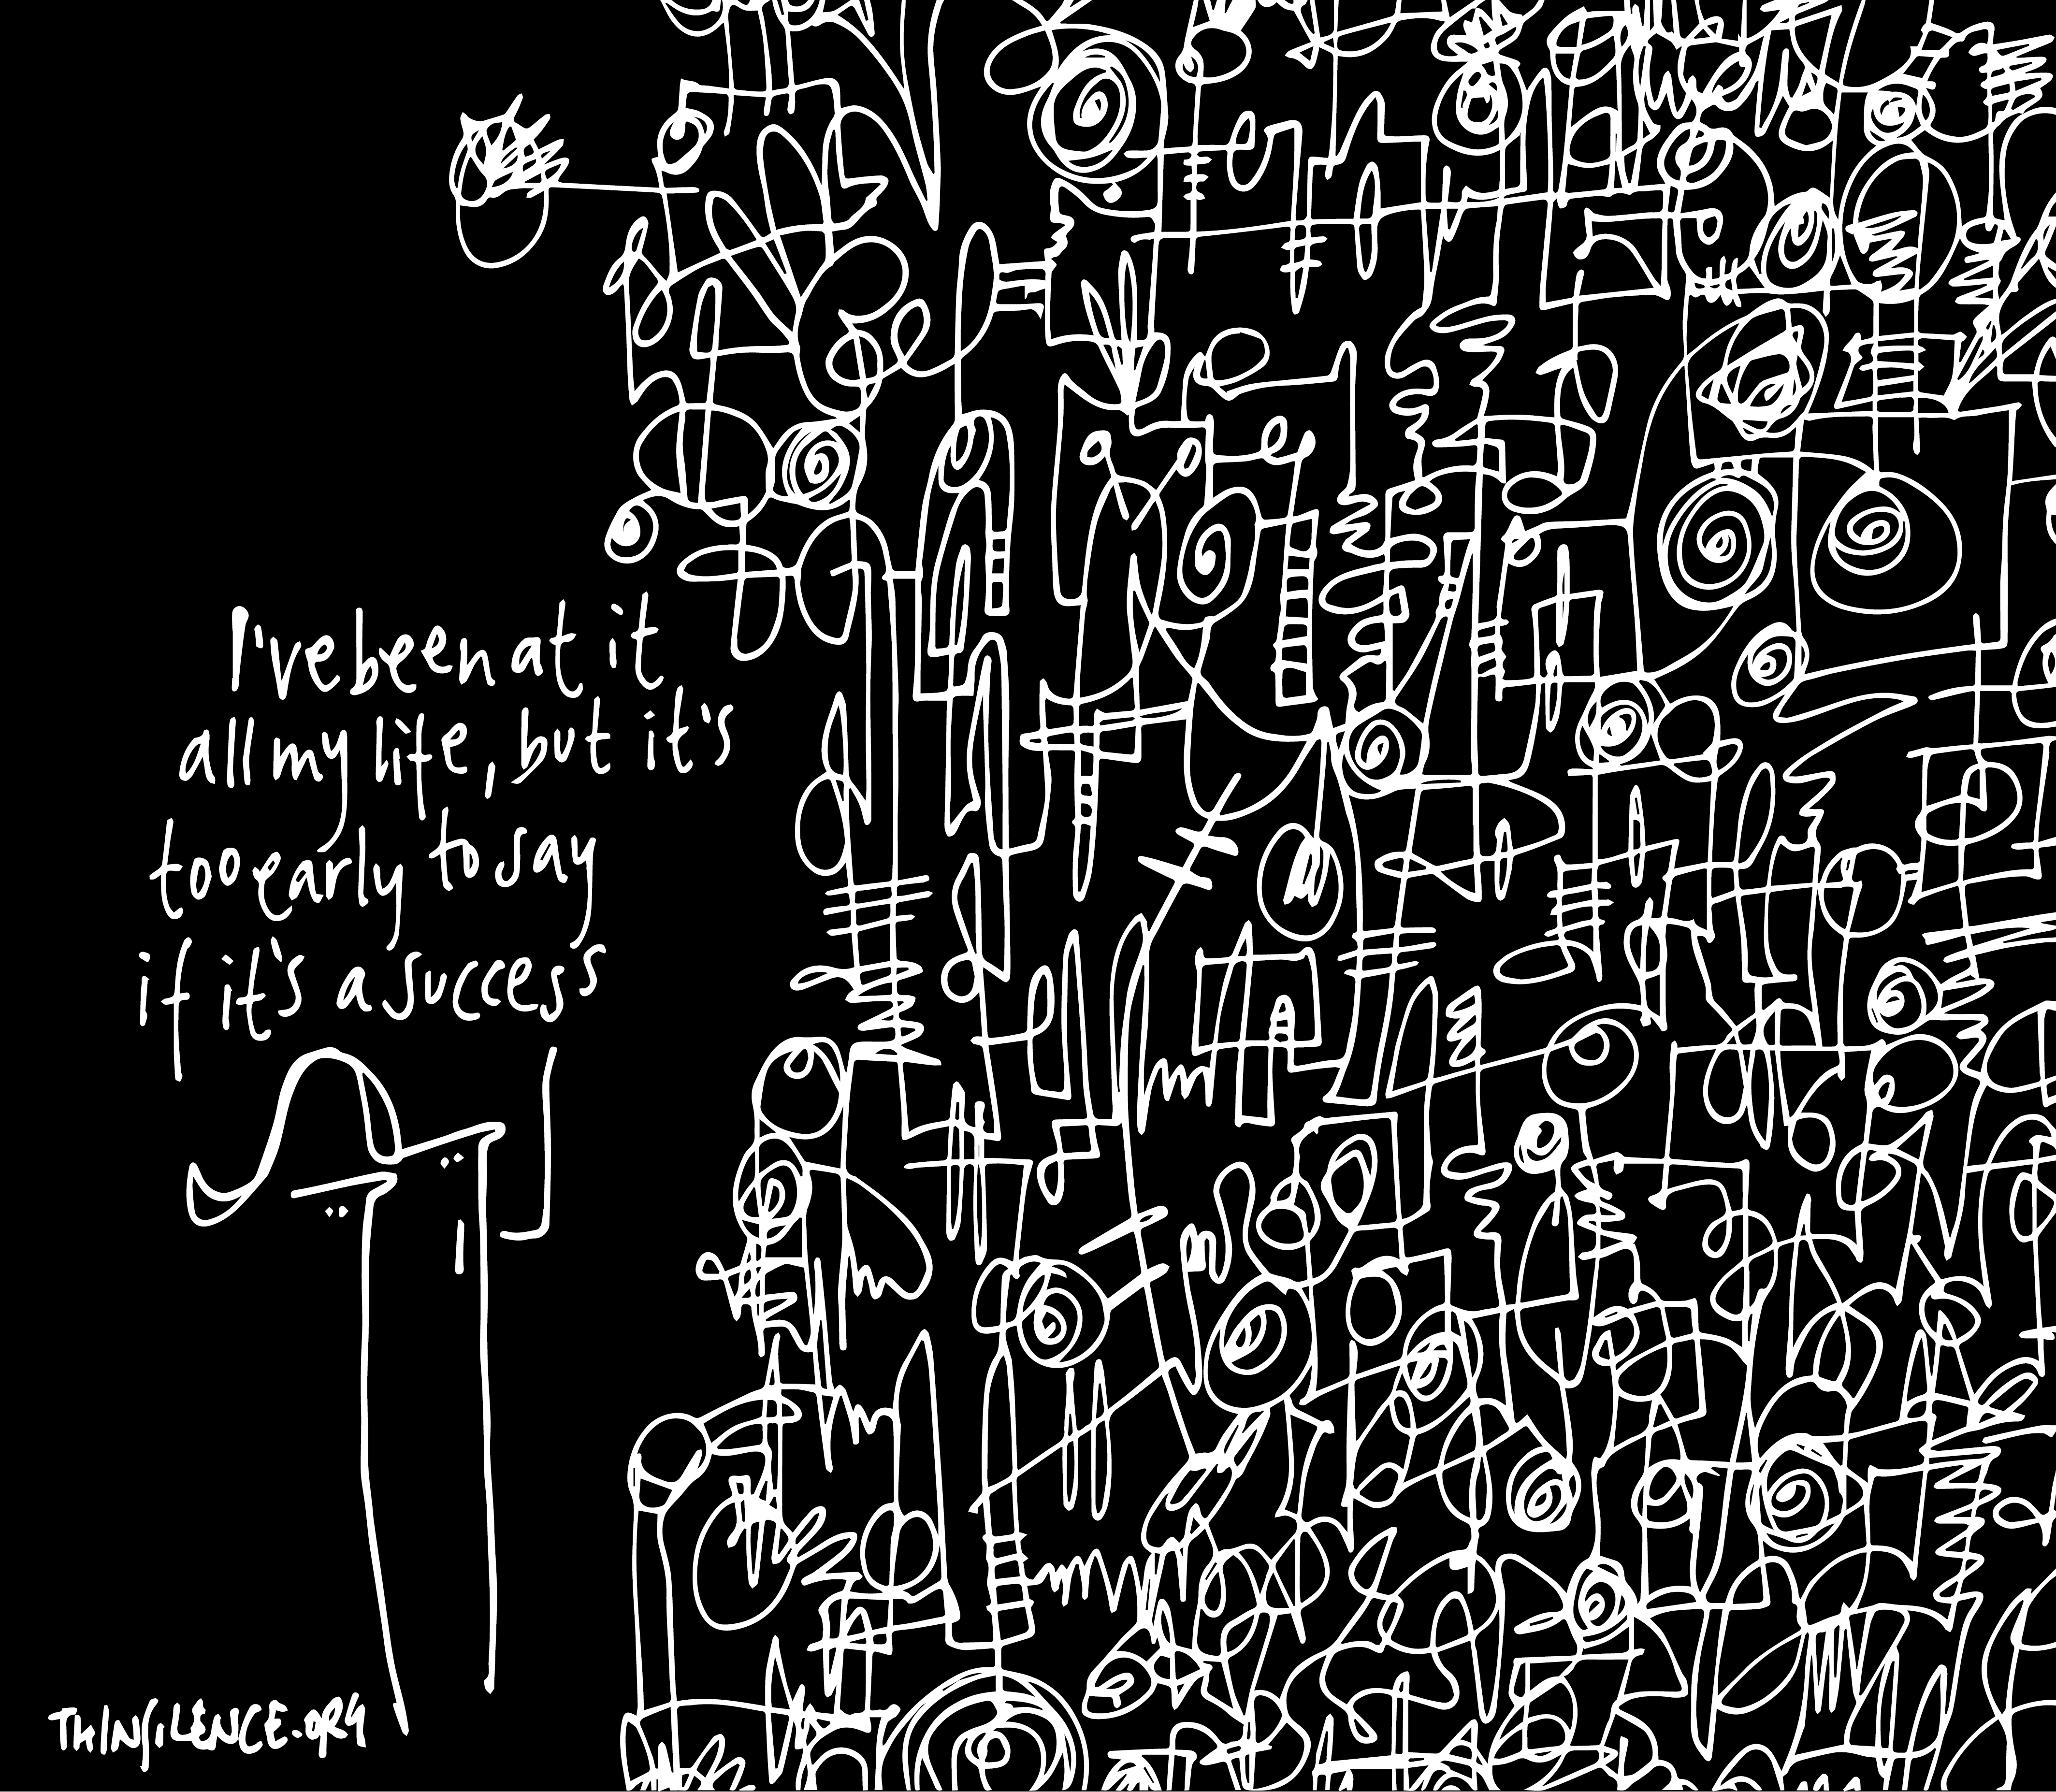 I've been at it
all my life, but it's
too early to say
if it's a success
THINSILENCE.ORG